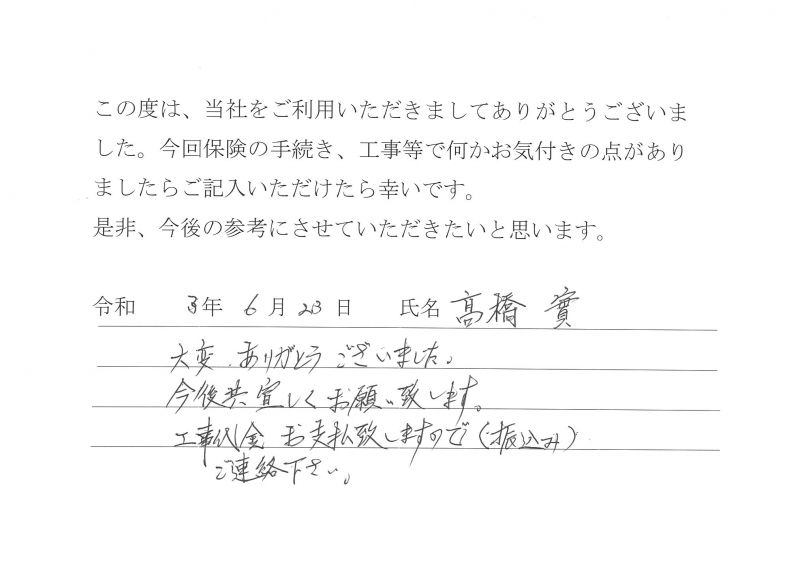 この度は、当社をご利用いただきましてありがとうございま
した。今回保険の手続き、工事等で何かお気付きの点があり
ましたらご記入いただけたら幸いです。
是非、今後の参考にさせていただきたいと思います。
令和 3年 6月23日 氏名 髙橋 實
大変ありがとうございました。
今後共宜しくお願い致します。
工事代金お支払致しますので(振込み)
ご連絡下さい。